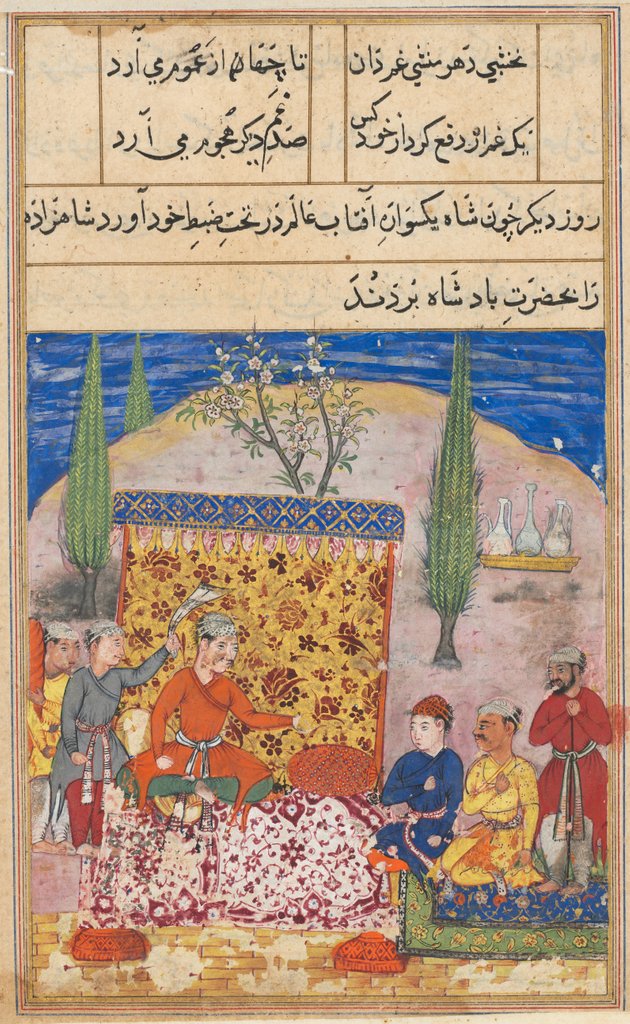 نخشبي دهر منشي غم دان
تا چهان از غموم مي آرد
يک غم ار دفع کرد از خود کس
صد غم ديکر هجوم مي آرد
روز ديکر چون شاه يکسواره آفتاب عالم در تحت ضبط خود آورد شاهزاده
را بحضرت بادشاه بردند